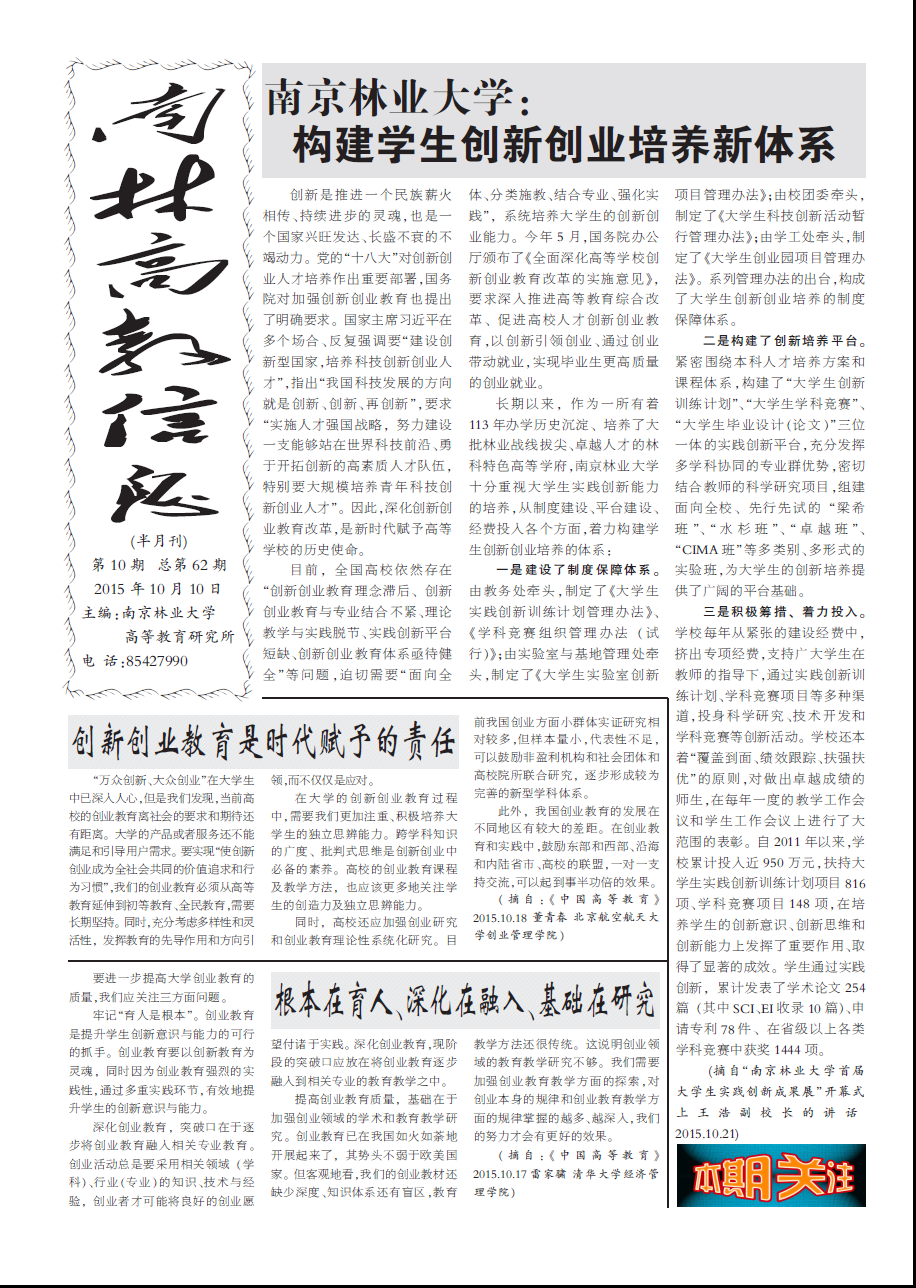 南林高教信息
(半月刊)
第10期 总第62期
2015年10月10日
主编:南京林业大学
高等教育研究所
电 话:85427990
南京林业大学：
构建学生创新创业培养新体系
创新是推进一个民族薪火
相传、持续进步的灵魂,也是一
个国家兴旺发达、长盛不衰的不
竭动力。党的“十八大”对创新创
业人才培养作出重要部署,国务
院对加强创新创业教育也提出
了明确要求。国家主席习近平在
多个场合、反复强调要“建设创
新型国家,培养科技创新创业人
才”,指出“我国科技发展的方向
就是创新、创新、再创新”,要求
“实施人才强国战略，努力建设
一支能够站在世界科技前沿、勇
于开拓创新的高素质人才队伍,
特别要大规模培养青年科技创
新创业人才”。因此,深化创新创
业教育改革,是新时代赋予高等
学校的历史使命。
目前，全国高校依然存在
“创新创业教育理念滞后、创新
创业教育与专业结合不紧、理论
教学与实践脱节、实践创新平台
短缺、创新创业教育体系亟待健
全”等问题，迫切需要“面向全
体、分类施教、结合专业、强化实
践”，系统培养大学生的创新创
业能力。今年5月,国务院办公
厅颁布了《全面深化高等学校创
新创业教育改革的实施意见》,
要求深入推进高等教育综合改
革、促进高校人才创新创业教
育,以创新引领创业、通过创业
带动就业,实现毕业生更高质量
的创业就业。
长期以来，作为一所有着
113年办学历史沉淀、培养了大
批林业战线拔尖、卓越人才的林
科特色高等学府,南京林业大学
十分重视大学生实践创新能力
的培养,从制度建设、平台建设、
经费投入各个方面,着力构建学
生创新创业培养的体系：
一是建设了制度保障体系。
由教务处牵头,制定了《大学生
实践创新训练计划管理办法》、
《学科竞赛组织管理办法（试
行)》;由实验室与基地管理处牵
头,制定了《大学生实验室创新
项目管理办法》;由校团委牵头,
制定了《大学生科技创新活动暂
行管理办法》;由学工处牵头,制
定了《大学生创业园项目管理办
法》。系列管理办法的出台,构成
了大学生创新创业培养的制度
保障体系。
二是构建了创新培养平台。
紧密围绕本科人才培养方案和
课程体系,构建了“大学生创新
训练计划”、“大学生学科竞赛”、
“大学生毕业设计(论文)”三位
一体的实践创新平台,充分发挥
多学科协同的专业群优势,密切
结合教师的科学研究项目,组建
面向全校、先行先试的“梁希
班”、“水杉班”、“卓越班”、
“CIMA班”等多类别、多形式的
实验班,为大学生的创新培养提
供了广阔的平台基础。
三是积极筹措、着力投入。
学校每年从紧张的建设经费中,
挤出专项经费,支持广大学生在
教师的指导下,通过实践创新训
练计划、学科竞赛项目等多种渠
道,投身科学研究、技术开发和
学科竞赛等创新活动。学校还本
着“覆盖到面、绩效跟踪、扶强扶
优”的原则,对做出卓越成绩的
师生,在每年一度的教学工作会
议和学生工作会议上进行了大
范围的表彰。自2011年以来,学
校累计投入近950万元,扶持大
学生实践创新训练计划项目816
项、学科竞赛项目148项,在培
养学生的创新意识、创新思维和
创新能力上发挥了重要作用、取
得了显著的成效。学生通过实践
创新，累计发表了学术论文254
篇（其中SCI、EI收录10篇）、申
请专利78件、在省级以上各类
学科竞赛中获奖1444项。
(摘自“南京林业大学首届
大学生实践创新成果展”开幕式
上王浩副校长的讲话
2015.10.21)
本期关注
创新创业教育是时代赋予的责任
“万众创新、大众创业”在大学生
中已深入人心,但是我们发现,当前高
校的创业教育离社会的要求和期待还
有距离。大学的产品或者服务还不能
满足和引导用户需求。要实现“使创新
创业成为全社会共同的价值追求和行
为习惯”,我们的创业教育必须从高等
教育延伸到初等教育、全民教育,需要
长期坚持。同时,充分考虑多样性和灵
活性，发挥教育的先导作用和方向引
领,而不仅仅是应对。
在大学的创新创业教育过程
中,需要我们更加注重、积极培养大
学生的独立思辨能力。跨学科知识
的广度、批判式思维是创新创业中
必备的素养。高校的创业教育课程
及教学方法，也应该更多地关注学
生的创造力及独立思辨能力。
同时，高校还应加强创业研究
和创业教育理论性系统化研究。目
前我国创业方面小群体实证研究相
对较多,但样本量小,代表性不足,
可以鼓励非盈利机构和社会团体和
高校院所联合研究，逐步形成较为
完善的新型学科体系。
此外，我国创业教育的发展在
不同地区有较大的差距。在创业教
育和实践中,鼓励东部和西部、沿海
和内陆省市、高校的联盟,一对一支
持交流,可以起到事半功倍的效果。
(摘自:《中国高等教育》
2015.10.18 董青春 北京航空航天大
学创业管理学院)
根本在育人、深化在融入、基础在研究
要进一步提高大学创业教育的
质量,我们应关注三方面问题。
牢记“育人是根本”。创业教育
是提升学生创新意识与能力的可行
的抓手。创业教育要以创新教育为
灵魂，同时因为创业教育强烈的实
践性,通过多重实践环节,有效地提
升学生的创新意识与能力。
深化创业教育，突破口在于逐
步将创业教育融入相关专业教育。
创业活动总是要采用相关领域（学
科）、行业(专业)的知识、技术与经
验，创业者才可能将良好的创业愿
望付诸于实践。深化创业教育,现阶
段的突破口应放在将创业教育逐步
融入到相关专业的教育教学之中。
提高创业教育质量，基础在于
加强创业领域的学术和教育教学研
究。创业教育已在我国如火如荼地
开展起来了，其势头不弱于欧美国
家。但客观地看,我们的创业教材还
缺少深度、知识体系还有盲区,教育
教学方法还很传统。这说明创业领
域的教育教学研究不够。我们需要
加强创业教育教学方面的探索,对
创业本身的规律和创业教育教学方
面的规律掌握的越多、越深入,我们
的努力才会有更好的效果。
(摘自:《中国高等教育》
2015.10.17 雷家骕 清华大学经济管
理学院)